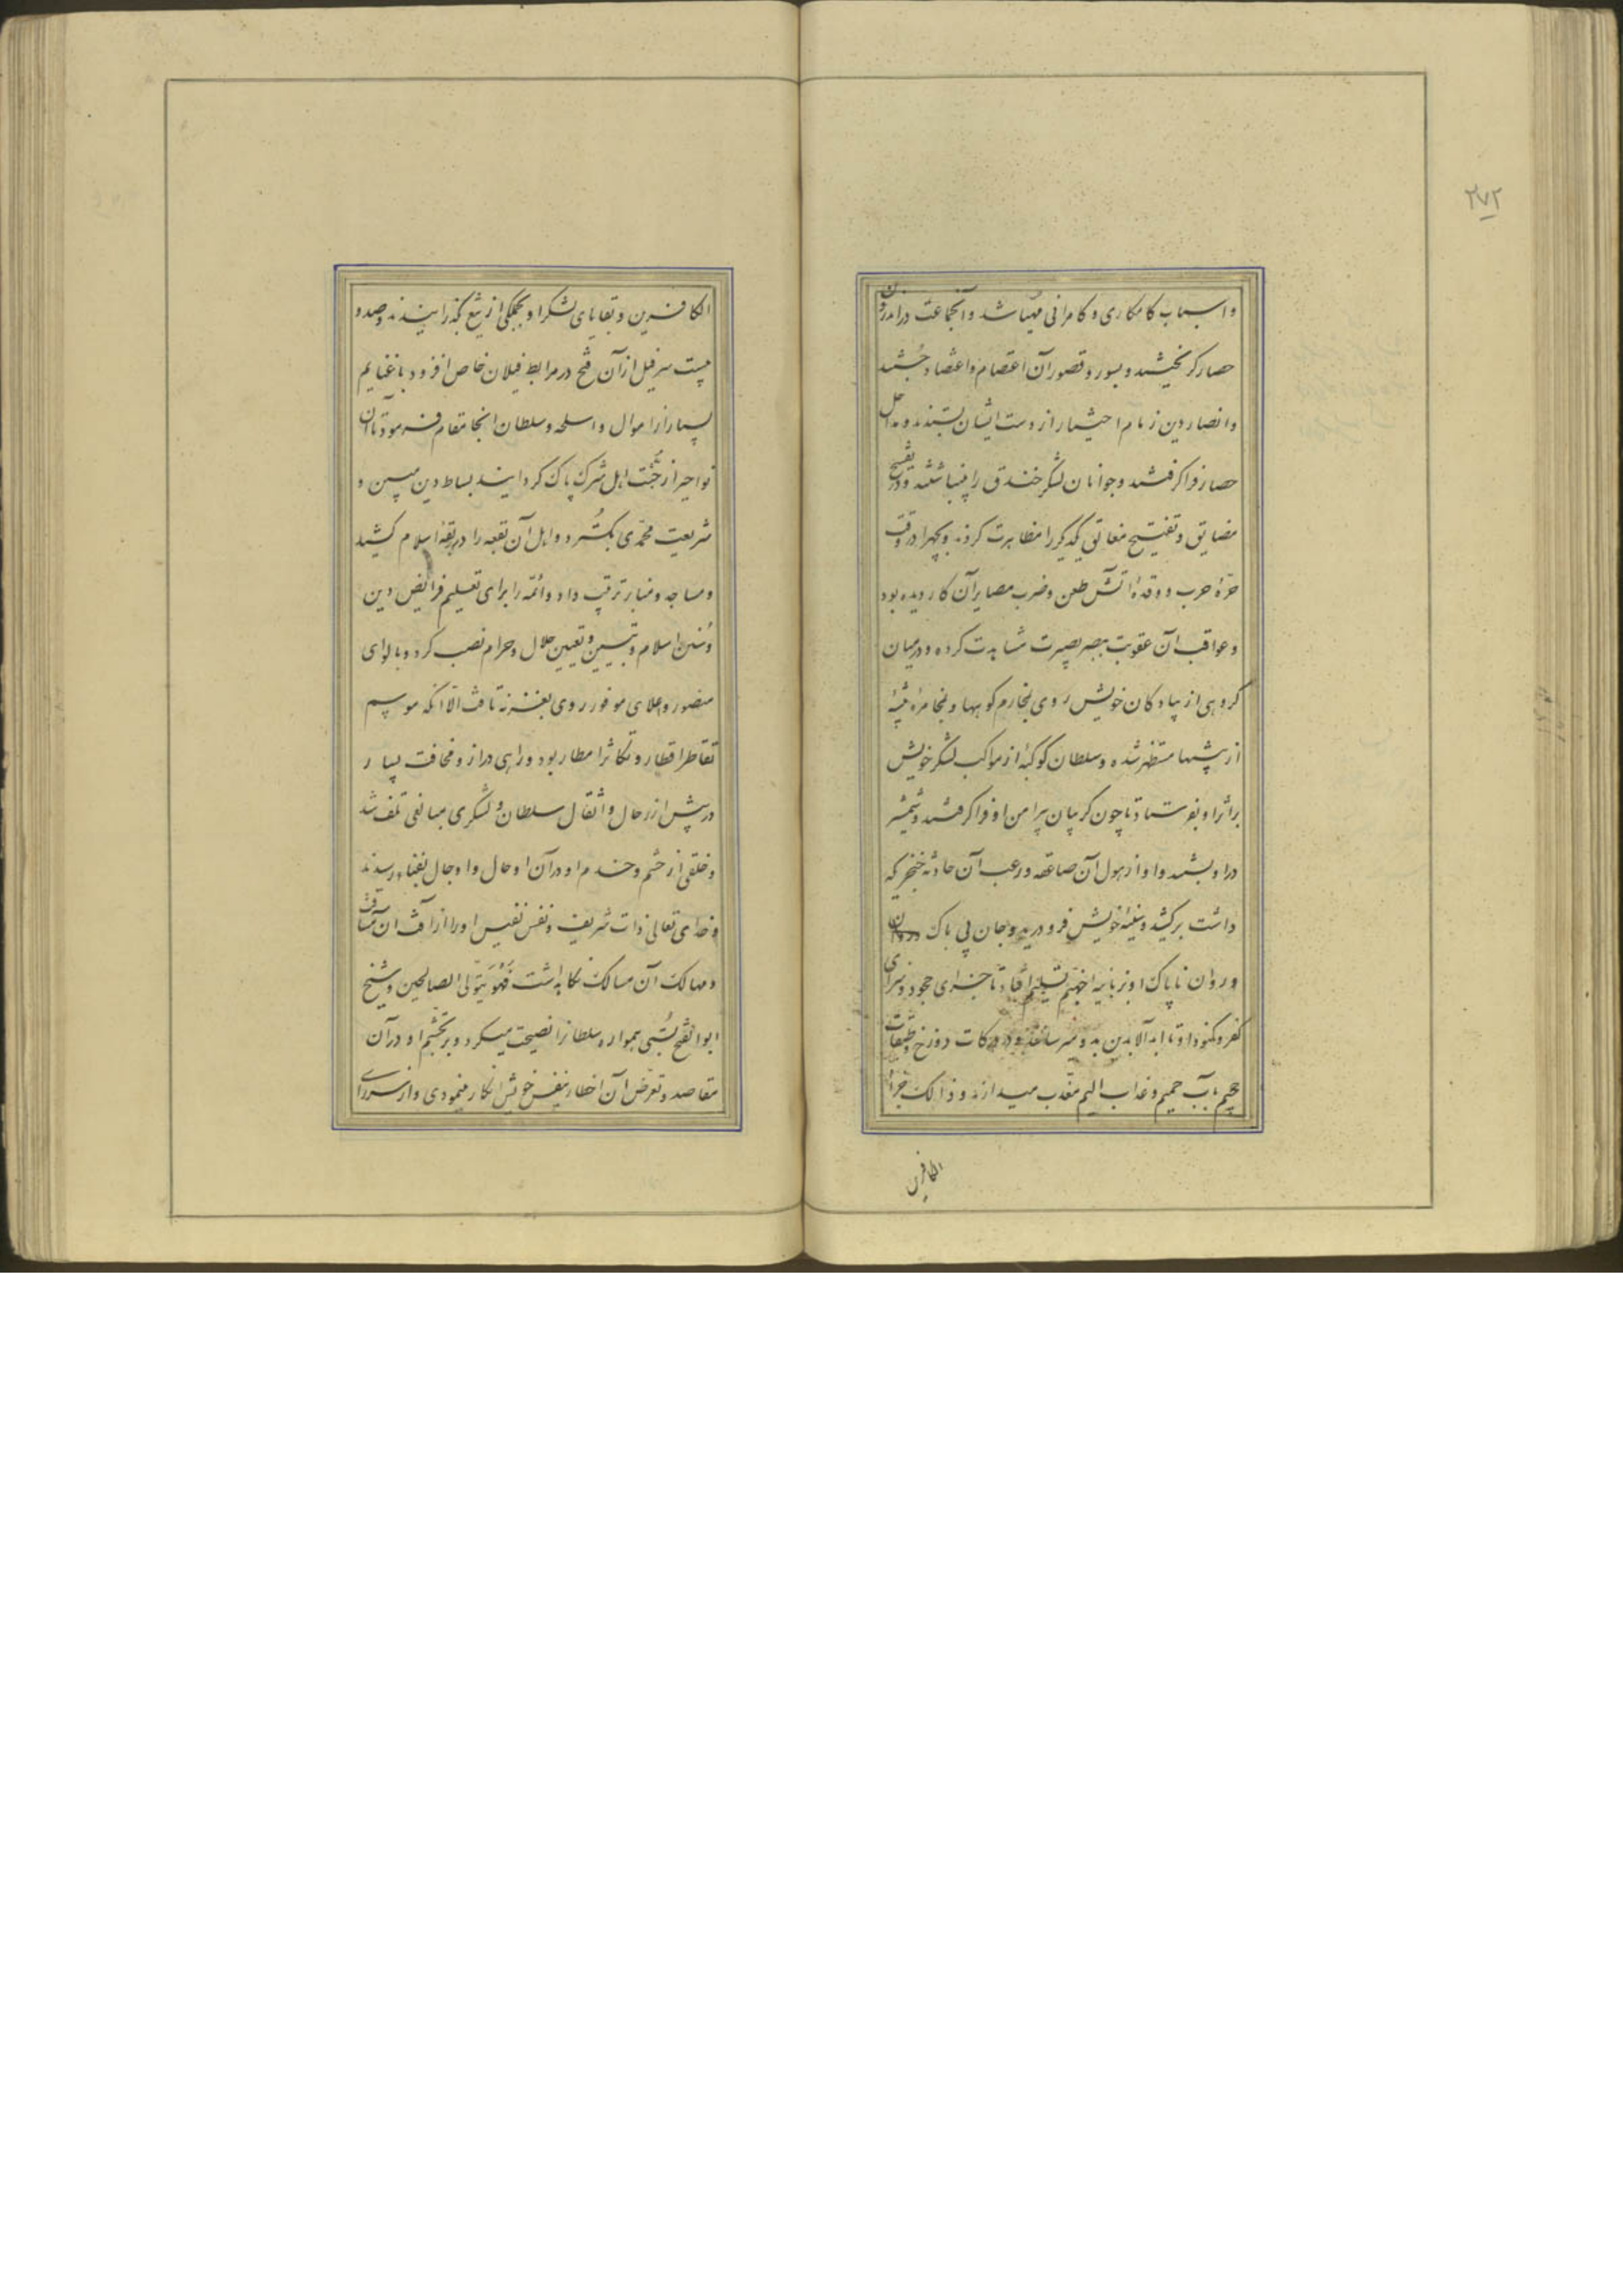 ۲۷۲
و اسباب کامکاری و کامرانی مهیا شد و آنجماعت در اندرون
حصار گریختند و بسور و قصور آن اعتصام و اعتضاد جستند
و انصار دین زمام اختیار از دست ایشان بستدند و مداخل
حصار فرا گرفتند و جوانان لشکر خندق را بینباشتند و در تفسیح
مضایق و تفتیح مغالق یکدیگر را مظاهرت کردند و بجهرا در وقت
حرهٔ حرب و وقدهٔ آتش طعن و ضرب مصایر آن کار دیده بود
و عواقب آن عقوبت ببصر بصیرت مشاهدت کرده و در میان
گروهی از پیادگان خویش روی بمخارم کوهها و بمخامرهٔ بیشهٔ
از بیشها مستظهر شده و سلطان کوکبهٔ از مواکب لشکر خویش
بر اثر او بفرستاد تا چون گریبان پیرامن او فرا گرفتند و شمشیر
در او بستند و او از هول آن صاعقه و رعب آن حادثه خنجر که
داشت برکشید و سینهٔ خویش فرو درید و جان بی باک
و روان ناپاک او بزبانیه جهنم تسلیم افتاد تا جزای جحود و سزای
کفر و کنود او تا ابد الابدین بدو میرسانند و در درکات دوزخ و طبقات
جحیم بآب حمیم و عذاب الیم معذب میدارند و ذالک جزاء
الکافرین
الکافرین و بقایای لشکر او بجملگی از تیغ بگذرانیدند و صد و
بیست سر فیل از آن فتح در مرابط فیلان خاص افزود با غنایم
بسیار از اموال و اسلحه و سلطان انجا مقام فرمود تا آن
نواحی را از خبث اهل شرک پاک گردانیند بساط دین مبین و
شریعت محمدی بگسترد و اهل آن بقعه را در ربقهٔ اسلام کشید
و مساجد و منابر ترتیب داد و ائمه را برای تعلیم فرایض دین
و سنن اسلام و تبیین و تعیین حلال و حرام نصب کرد و با لوای
منصور و علای موفور روی بغزنه تافت الا آنکه موسم
تقاطر اقطار و تکاثر امطار بود و راهی دراز و مخافت بسیار
در پیش از رحال و اثقال سلطان و لشکری مبالغی تلف شد
و خلقی از حشم و خدم او در آن اوحال و اوجال بفنا رسیدند
و خدای تعالی ذات شریف و نفس نفیس او را از آفت آن مشاق
و مهالک آن مسالک نگاهداشت فهو یتولی الصالحین و شیخ
ابوالفتح بستی همواره سلطانرا نصیحت میکرد و بر تجشم او در آن
مقاصد و تعرض آن اخطار بنفس خویش انکار مینمودی و از سر رای